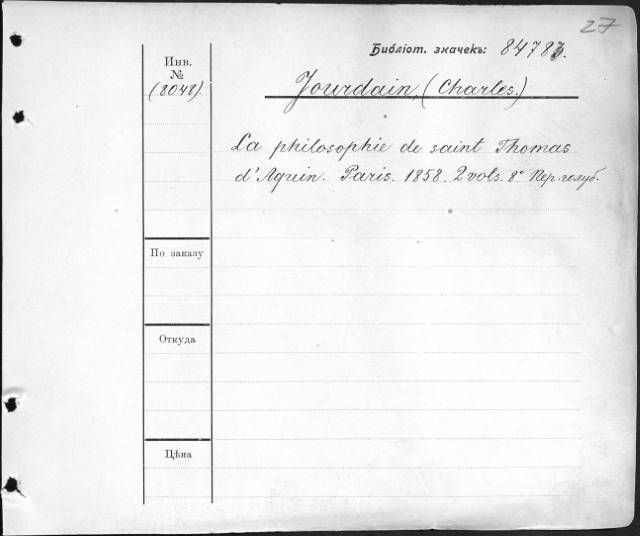 27
Библіот. значекъ: 84783.
Инв.
№
(8048).
Jourdain, (Charles.)
La philosophie de saint Thomas
d'Aquin. Paris. 1858. 2 vols. 8° Пер. голуб.
По заказу
Откуда
Цѣна